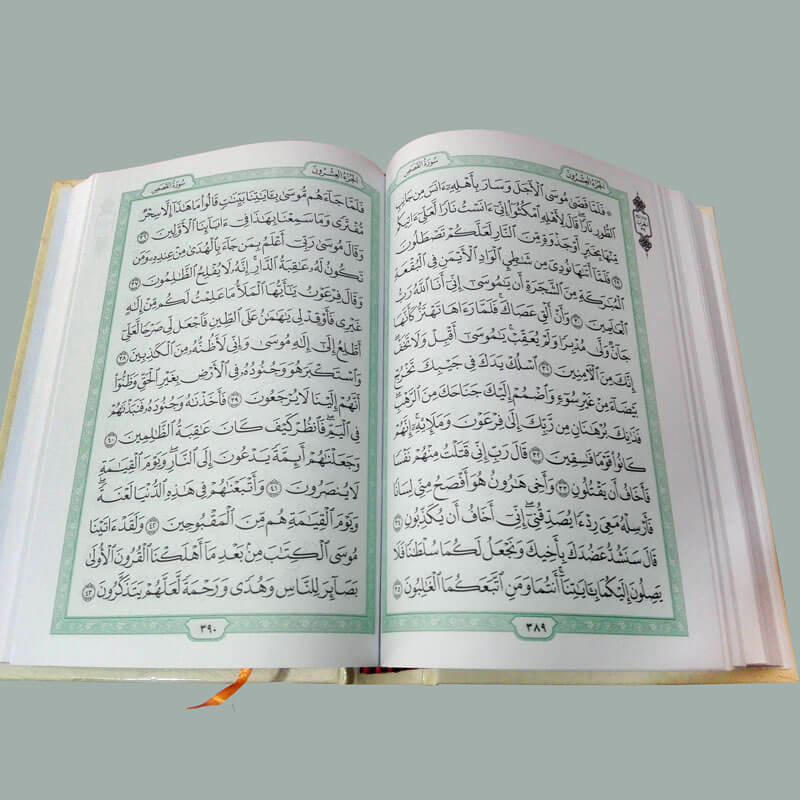 سُورَةُ القَصَصِ
الجُزْءُ العِشْرُونَ
۞ فَلَمَّا قَضَىٰ مُوسَى ٱلْأَجَلَ وَسَارَ بِأَهْلِهِۦٓ ءَانَسَ مِن جَانِبِ
ٱلطُّورِ نَارًا قَالَ لِأَهْلِهِ ٱمْكُثُوٓا۟ إِنِّىٓ ءَانَسْتُ نَارًا لَّعَلِّىٓ ءَاتِيكُم
مِّنْهَا بِخَبَرٍ أَوْ جَذْوَةٍ مِّنَ ٱلنَّارِ لَعَلَّكُمْ تَصْطَلُونَ
٢٩ فَلَمَّآ أَتَىٰهَا نُودِىَ مِن شَٰطِئِ ٱلْوَادِ ٱلْأَيْمَنِ فِى ٱلْبُقْعَةِ
ٱلْمُبَٰرَكَةِ مِنَ ٱلشَّجَرَةِ أَن يَٰمُوسَىٰٓ إِنِّىٓ أَنَا ٱللَّهُ رَبُّ
ٱلْعَٰلَمِينَ ٣٠ وَأَنْ أَلْقِ عَصَاكَ فَلَمَّا رَءَاهَا تَهْتَزُّ كَأَنَّهَا
جَآنٌّ وَلَّىٰ مُدْبِرًا وَلَمْ يُعَقِّبْ يَٰمُوسَىٰٓ أَقْبِلْ وَلَا تَخَفْ
إِنَّكَ مِنَ ٱلْءَامِنِينَ ٣١ ٱسْلُكْ يَدَكَ فِى جَيْبِكَ تَخْرُجْ
بَيْضَآءَ مِنْ غَيْرِ سُوٓءٍ وَٱضْمُمْ إِلَيْكَ جَنَاحَكَ مِنَ ٱلرَّهْبِ
فَذَٰنِكَ بُرْهَٰنَانِ مِن رَّبِّكَ إِلَىٰ فِرْعَوْنَ وَمَلَإِي۟هِۦٓ إِنَّهُمْ
كَانُوا۟ قَوْمًا فَٰسِقِينَ ٣٢ قَالَ رَبِّ إِنِّى قَتَلْتُ مِنْهُمْ نَفْسًا
فَأَخَافُ أَن يَقْتُلُونِ ٣٣ وَأَخِى هَٰرُونُ هُوَ أَفْصَحُ مِنِّى لِسَانًا
فَأَرْسِلْهُ مَعِىَ رِدْءًا يُصَدِّقُنِىٓ إِنِّىٓ أَخَافُ أَن يُكَذِّبُونِ ٣٤
قَالَ سَنَشُدُّ عَضُدَكَ بِأَخِيكَ وَنَجْعَلُ لَكُمَا سُلْطَٰنًا فَلَا
يَصِلُونَ إِلَيْكُمَا بِـَٔايَٰتِنَآ أَنتُمَا وَمَنِ ٱتَّبَعَكُمَا ٱلْغَٰلِبُونَ ٣٥
٣٨٩
الجُزْءُ العِشْرُونَ
سُورَةُ القَصَصِ
فَلَمَّا جَآءَهُم مُّوسَىٰ بِـَٔايَٰتِنَا بَيِّنَٰتٍ قَالُوا۟ مَا هَٰذَآ إِلَّا سِحْرٌ
مُّفْتَرًى وَمَا سَمِعْنَا بِهَٰذَا فِىٓ ءَابَآئِنَا ٱلْأَوَّلِينَ ٣٦
وَقَالَ مُوسَىٰ رَبِّىٓ أَعْلَمُ بِمَن جَآءَ بِٱلْهُدَىٰ مِنْ عِندِهِۦ وَمَن
تَكُونُ لَهُۥ عَٰقِبَةُ ٱلدَّارِ إِنَّهُۥ لَا يُفْلِحُ ٱلظَّٰلِمُونَ ٣٧
وَقَالَ فِرْعَوْنُ يَٰٓأَيُّهَا ٱلْمَلَأُ مَا عَلِمْتُ لَكُم مِّنْ إِلَٰهٍ
غَيْرِى فَأَوْقِدْ لِى يَٰهَٰمَٰنُ عَلَى ٱلطِّينِ فَٱجْعَل لِّى صَرْحًا لَّعَلِّىٓ
أَطَّلِعُ إِلَىٰٓ إِلَٰهِ مُوسَىٰ وَإِنِّى لَأَظُنُّهُۥ مِنَ ٱلْكَٰذِبِينَ ٣٨
وَٱسْتَكْبَرَ هُوَ وَجُنُودُهُۥ فِى ٱلْأَرْضِ بِغَيْرِ ٱلْحَقِّ وَظَنُّوٓا۟
أَنَّهُمْ إِلَيْنَا لَا يُرْجَعُونَ ٣٩ فَأَخَذْنَٰهُ وَجُنُودَهُۥ فَنَبَذْنَٰهُمْ
فِى ٱلْيَمِّ فَٱنظُرْ كَيْفَ كَانَ عَٰقِبَةُ ٱلظَّٰلِمِينَ ٤٠
وَجَعَلْنَٰهُمْ أَئِمَّةً يَدْعُونَ إِلَى ٱلنَّارِ وَيَوْمَ ٱلْقِيَٰمَةِ
لَا يُنصَرُونَ ٤١ وَأَتْبَعْنَٰهُمْ فِى هَٰذِهِ ٱلدُّنْيَا لَعْنَةً
وَيَوْمَ ٱلْقِيَٰمَةِ هُم مِّنَ ٱلْمَقْبُوحِينَ ٤٢ وَلَقَدْ ءَاتَيْنَا
مُوسَى ٱلْكِتَٰبَ مِنۢ بَعْدِ مَآ أَهْلَكْنَا ٱلْقُرُونَ ٱلْأُولَىٰ
بَصَآئِرَ لِلنَّاسِ وَهُدًى وَرَحْمَةً لَّعَلَّهُمْ يَتَذَكَّرُونَ ٤٣
٣٩٠